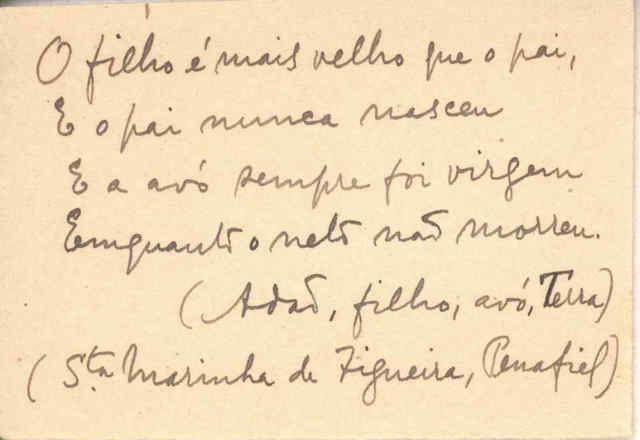 O filho é mais velho que o pai,
E o pai nunca nasceu
E a avó sempre foi virgem
Eemquanto o neto não morreu.
(Adão, filho, avó, Terra)
(Sta Marinha de Figueira, Penafiel)